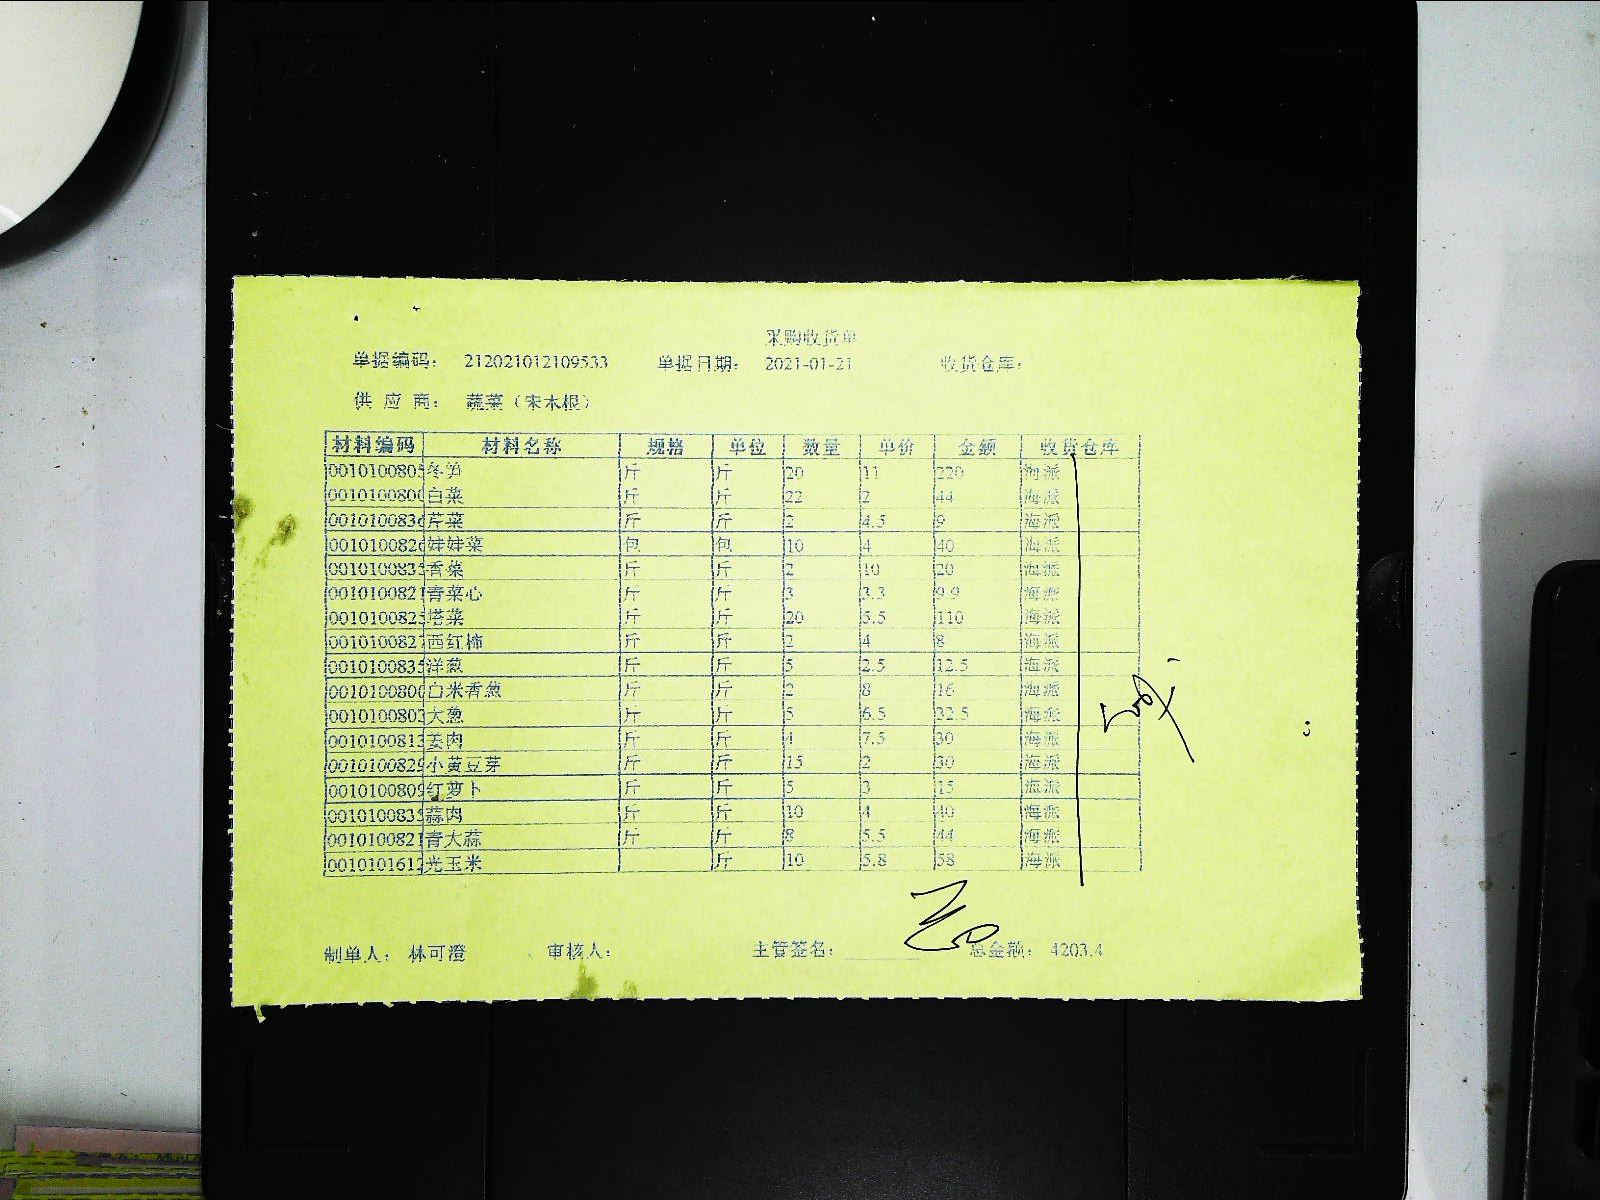 采购收货单
单据编码： 212021012109533 单据日期： 2021-01-21 收货仓库：
供 应 商： 蔬菜（宋木根）
材料编码 材料名称 规格 单位 数量 单价 金额 收货仓库
001010080 冬笋 斤 斤 20 11 220 海派
001010080 白菜 斤 斤 22 2 44 海派
001010083 芹菜 斤 斤 2 4.5 9 海派
001010082 娃娃菜 包 包 10 4 40 海派
001010083 香菜 斤 斤 2 10 20 海派
001010082 青菜心 斤 斤 3 3.3 9.9 海派
001010082 塔菜 斤 斤 20 5.5 110 海派
001010082 西红柿 斤 斤 2 4 8 海派
001010083 洋葱 斤 斤 5 2.5 12.5 海派
001010080 白米香葱 斤 斤 2 8 16 海派
001010080 大葱 斤 斤 5 6.5 32.5 海派
001010081 姜肉 斤 斤 4 7.5 30 海派
001010082 小黄豆芽 斤 斤 15 2 30 海派
001010080 红萝卜 斤 斤 5 3 15 海派
001010083 蒜肉 斤 斤 10 4 40 海派
001010082 青大蒜 斤 斤 8 5.5 44 海派
001010161 光玉米 斤 10 5.8 58 海派
制单人： 林可澄 审核人： 主管签名： 总金额： 4203.4